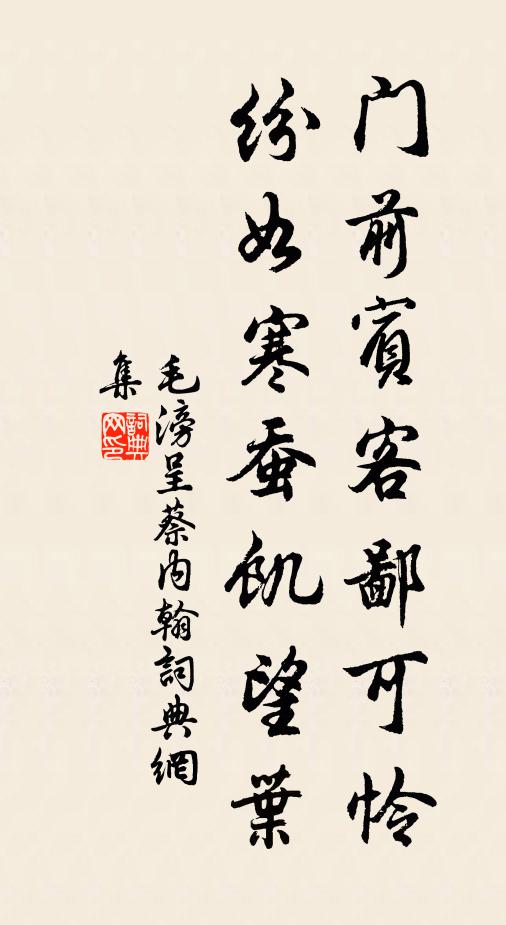 门前賓客鄙可怜
纷如寒蚕饥望葉
毛滂呈蔡内翰詞典網
集
詞典
网印